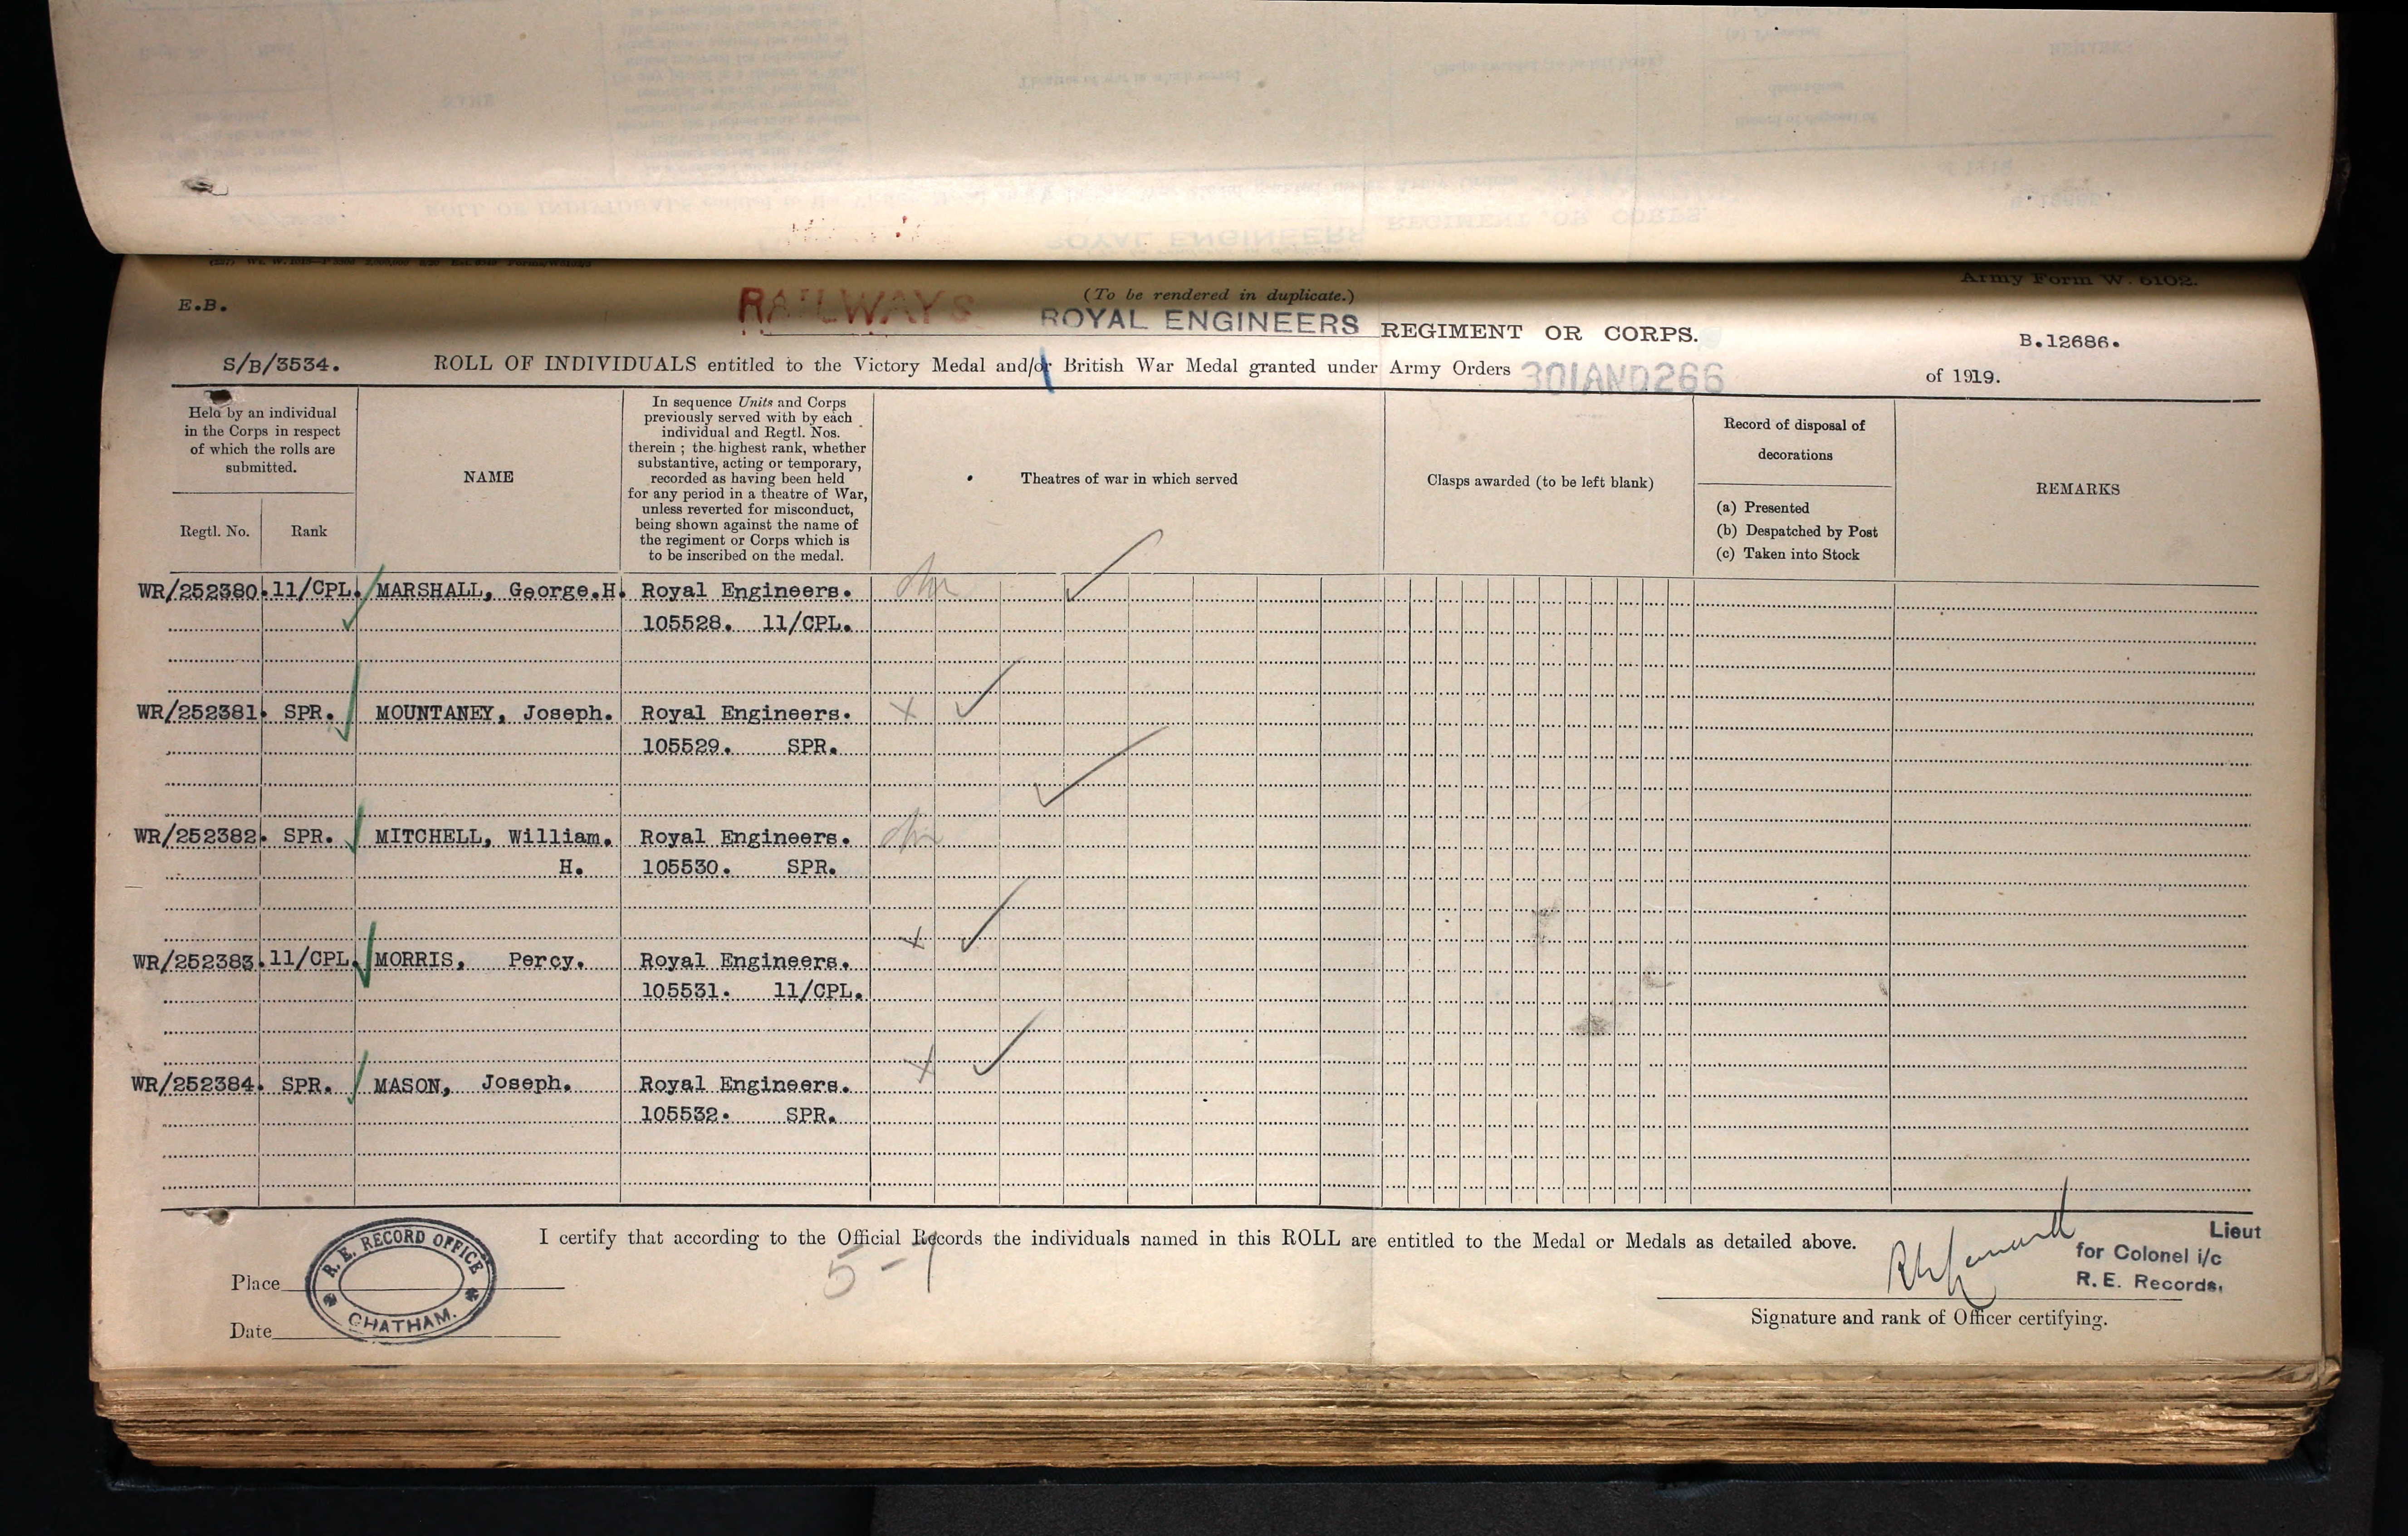 Army Form W. 5102.
E.B.
RAILWAYS
(To be rendered in duplicate.)
ROYAL ENGINEERS REGIMENT OR CORPS.
B.12686.
S/B/3534.
ROLL OF INDIVIDUALS entitled to the Victory Medal and/or British War Medal granted under Army Orders 301AND266 of 1919.
Held by an individual
in the Corps in respect
of which the rolls are
submitted.
Regtl. No.
Rank
NAME
In sequence Units and Corps
previously served with by each
individual and Regtl. Nos.
therein ; the highest rank, whether
substantive, acting or temporary,
recorded as having been held
for any period in a theatre of War,
unless reverted for misconduct,
being shown against the name of
the regiment or Corps which is
to be inscribed on the medal.
Theatres of war in which served
Clasps awarded (to be left blank)
Record of disposal of
decorations
(a) Presented
(b) Despatched by Post
(c) Taken into Stock
REMARKS
WR/252380. 11/CPL. MARSHALL, George.H. Royal Engineers.
105528. 11/CPL.
WR/252381. SPR. MOUNTANEY, Joseph. Royal Engineers. x
105529. SPR.
WR/252382. SPR. MITCHELL, William. Royal Engineers.
H. 105530. SPR.
WR/252383. 11/CPL. MORRIS, Percy. Royal Engineers. x
105531. 11/CPL.
WR/252384. SPR. MASON, Joseph. Royal Engineers. x
105532. SPR.
I certify that according to the Official Records the individuals named in this ROLL are entitled to the Medal or Medals as detailed above.
Place
R. E. RECORD OFFICE
CHATHAM.
Date
Lieut
for Colonel i/c
R. E. Records.
Signature and rank of Officer certifying.